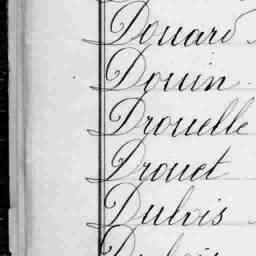 Douard
Douin
Drouelle
Drouet
Dulois